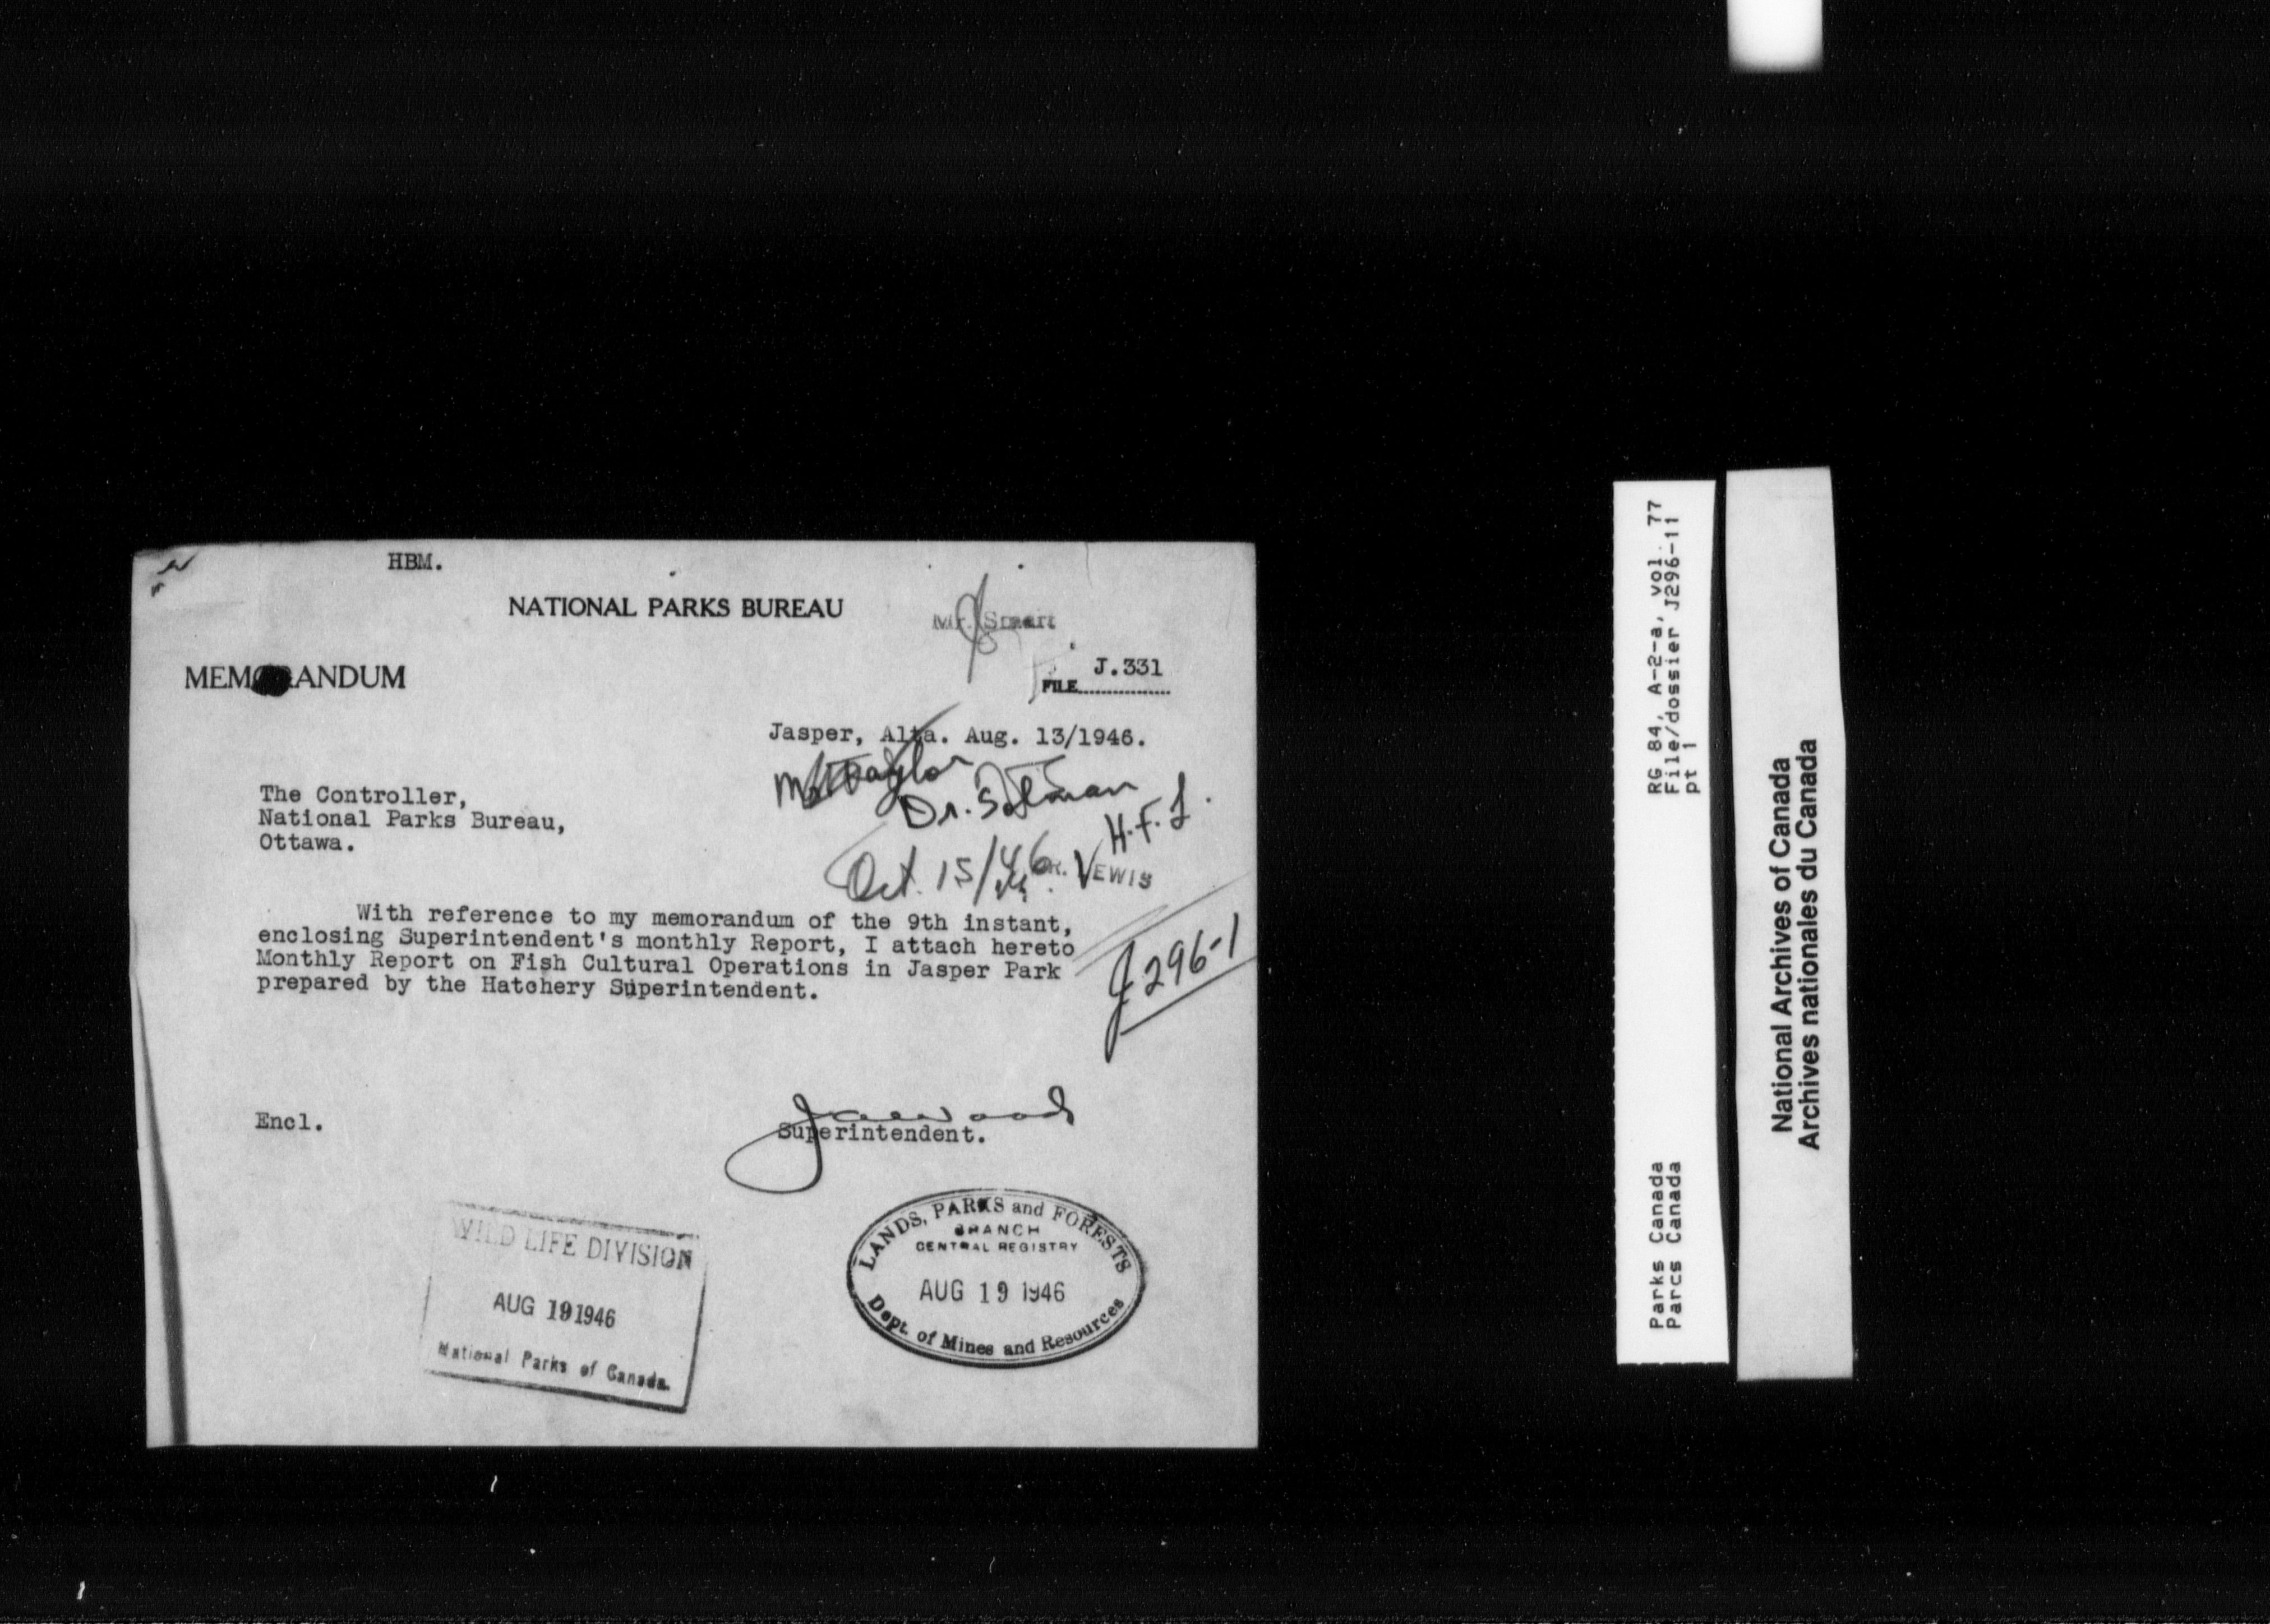 HBM.
NATIONAL PARKS BUREAU
Mr. Smart
MEMORANDUM
J.331
FILE
Jasper, Alta. Aug. 13/1946.
Mr Taylor
Dr. Solman
H.F.L.
The Controller,
National Parks Bureau,
Ottawa.
Oct. 15/46.
DR. LEWIS
With reference to my memorandum of the 9th instant,
enclosing Superintendent's monthly Report, I attach hereto
Monthly Report on Fish Cultural Operations in Jasper Park
prepared by the Hatchery Superintendent.
J296-1
Encl.
Superintendent.
WILD LIFE DIVISION
AUG 19 1946
National Parks of Canada.
LANDS, PARKS and FORESTS
BRANCH
CENTRAL REGISTRY
AUG 19 1946
Dept. of Mines and Resources
Parks Canada RG 84, A-2-a, vol. 77
Parcs Canada File/dossier J296-11
pt 1
National Archives of Canada
Archives nationales du Canada